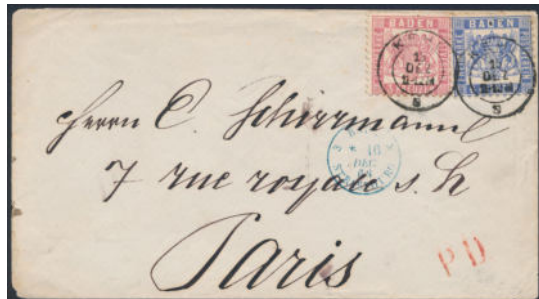 BADEN BADEN
DEZ DEZ
Herrn C. Schirrmann
16
DEC
7 rue royale s. h
Paris
PD